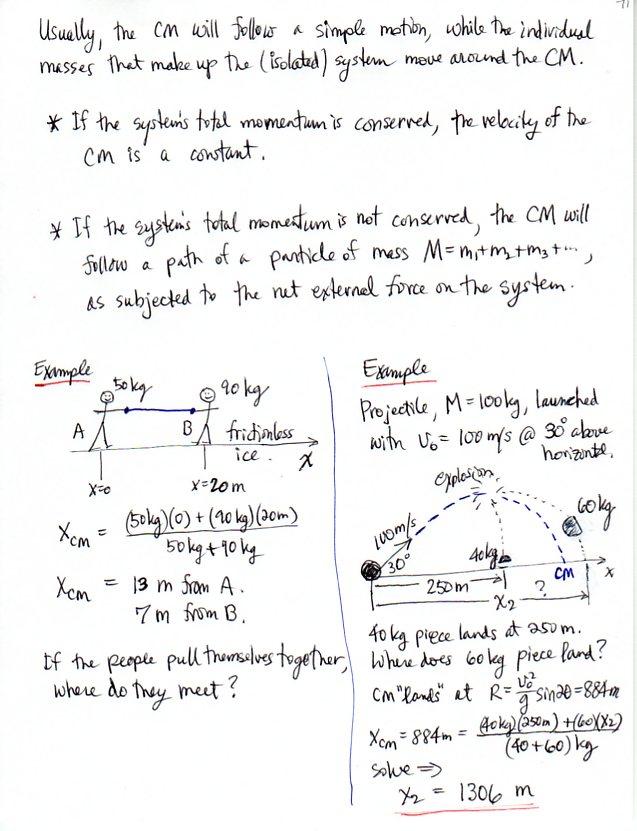 Usually, the CM will follow a simple motion, while the individual
masses that make up the (isolated) system move around the CM.
* If the system's total momentum is conserved, the velocity of the
CM is a constant.
* If the system's total momentum is not conserved, the CM will
follow a path of a particle of mass M = m₁+m₂+m₃+...,
as subjected to the net external force on the system.
Example
50 kg
90 kg
A
B
frictionless
ice.
x
x=0
x=20 m
Xcm = (50kg)(0) + (90kg)(20m) / 50kg + 90kg
Xcm = 13 m from A.
7 m from B.
If the people pull themselves together,
where do they meet?
Example
Projectile, M = 100 kg, launched
with v₀ = 100 m/s @ 30° above
horizontal.
explosion
60 kg
100 m/s
30°
40kg
CM
x
250 m
?
X₂
40 kg piece lands at 250 m.
Where does 60 kg piece land?
CM "lands" at R = v₀²/g sin2θ = 884 m
Xcm = 884 m = (40kg)(250m) + (60)(X₂) / (40+60) kg
solve ⇒
X₂ = 1306 m